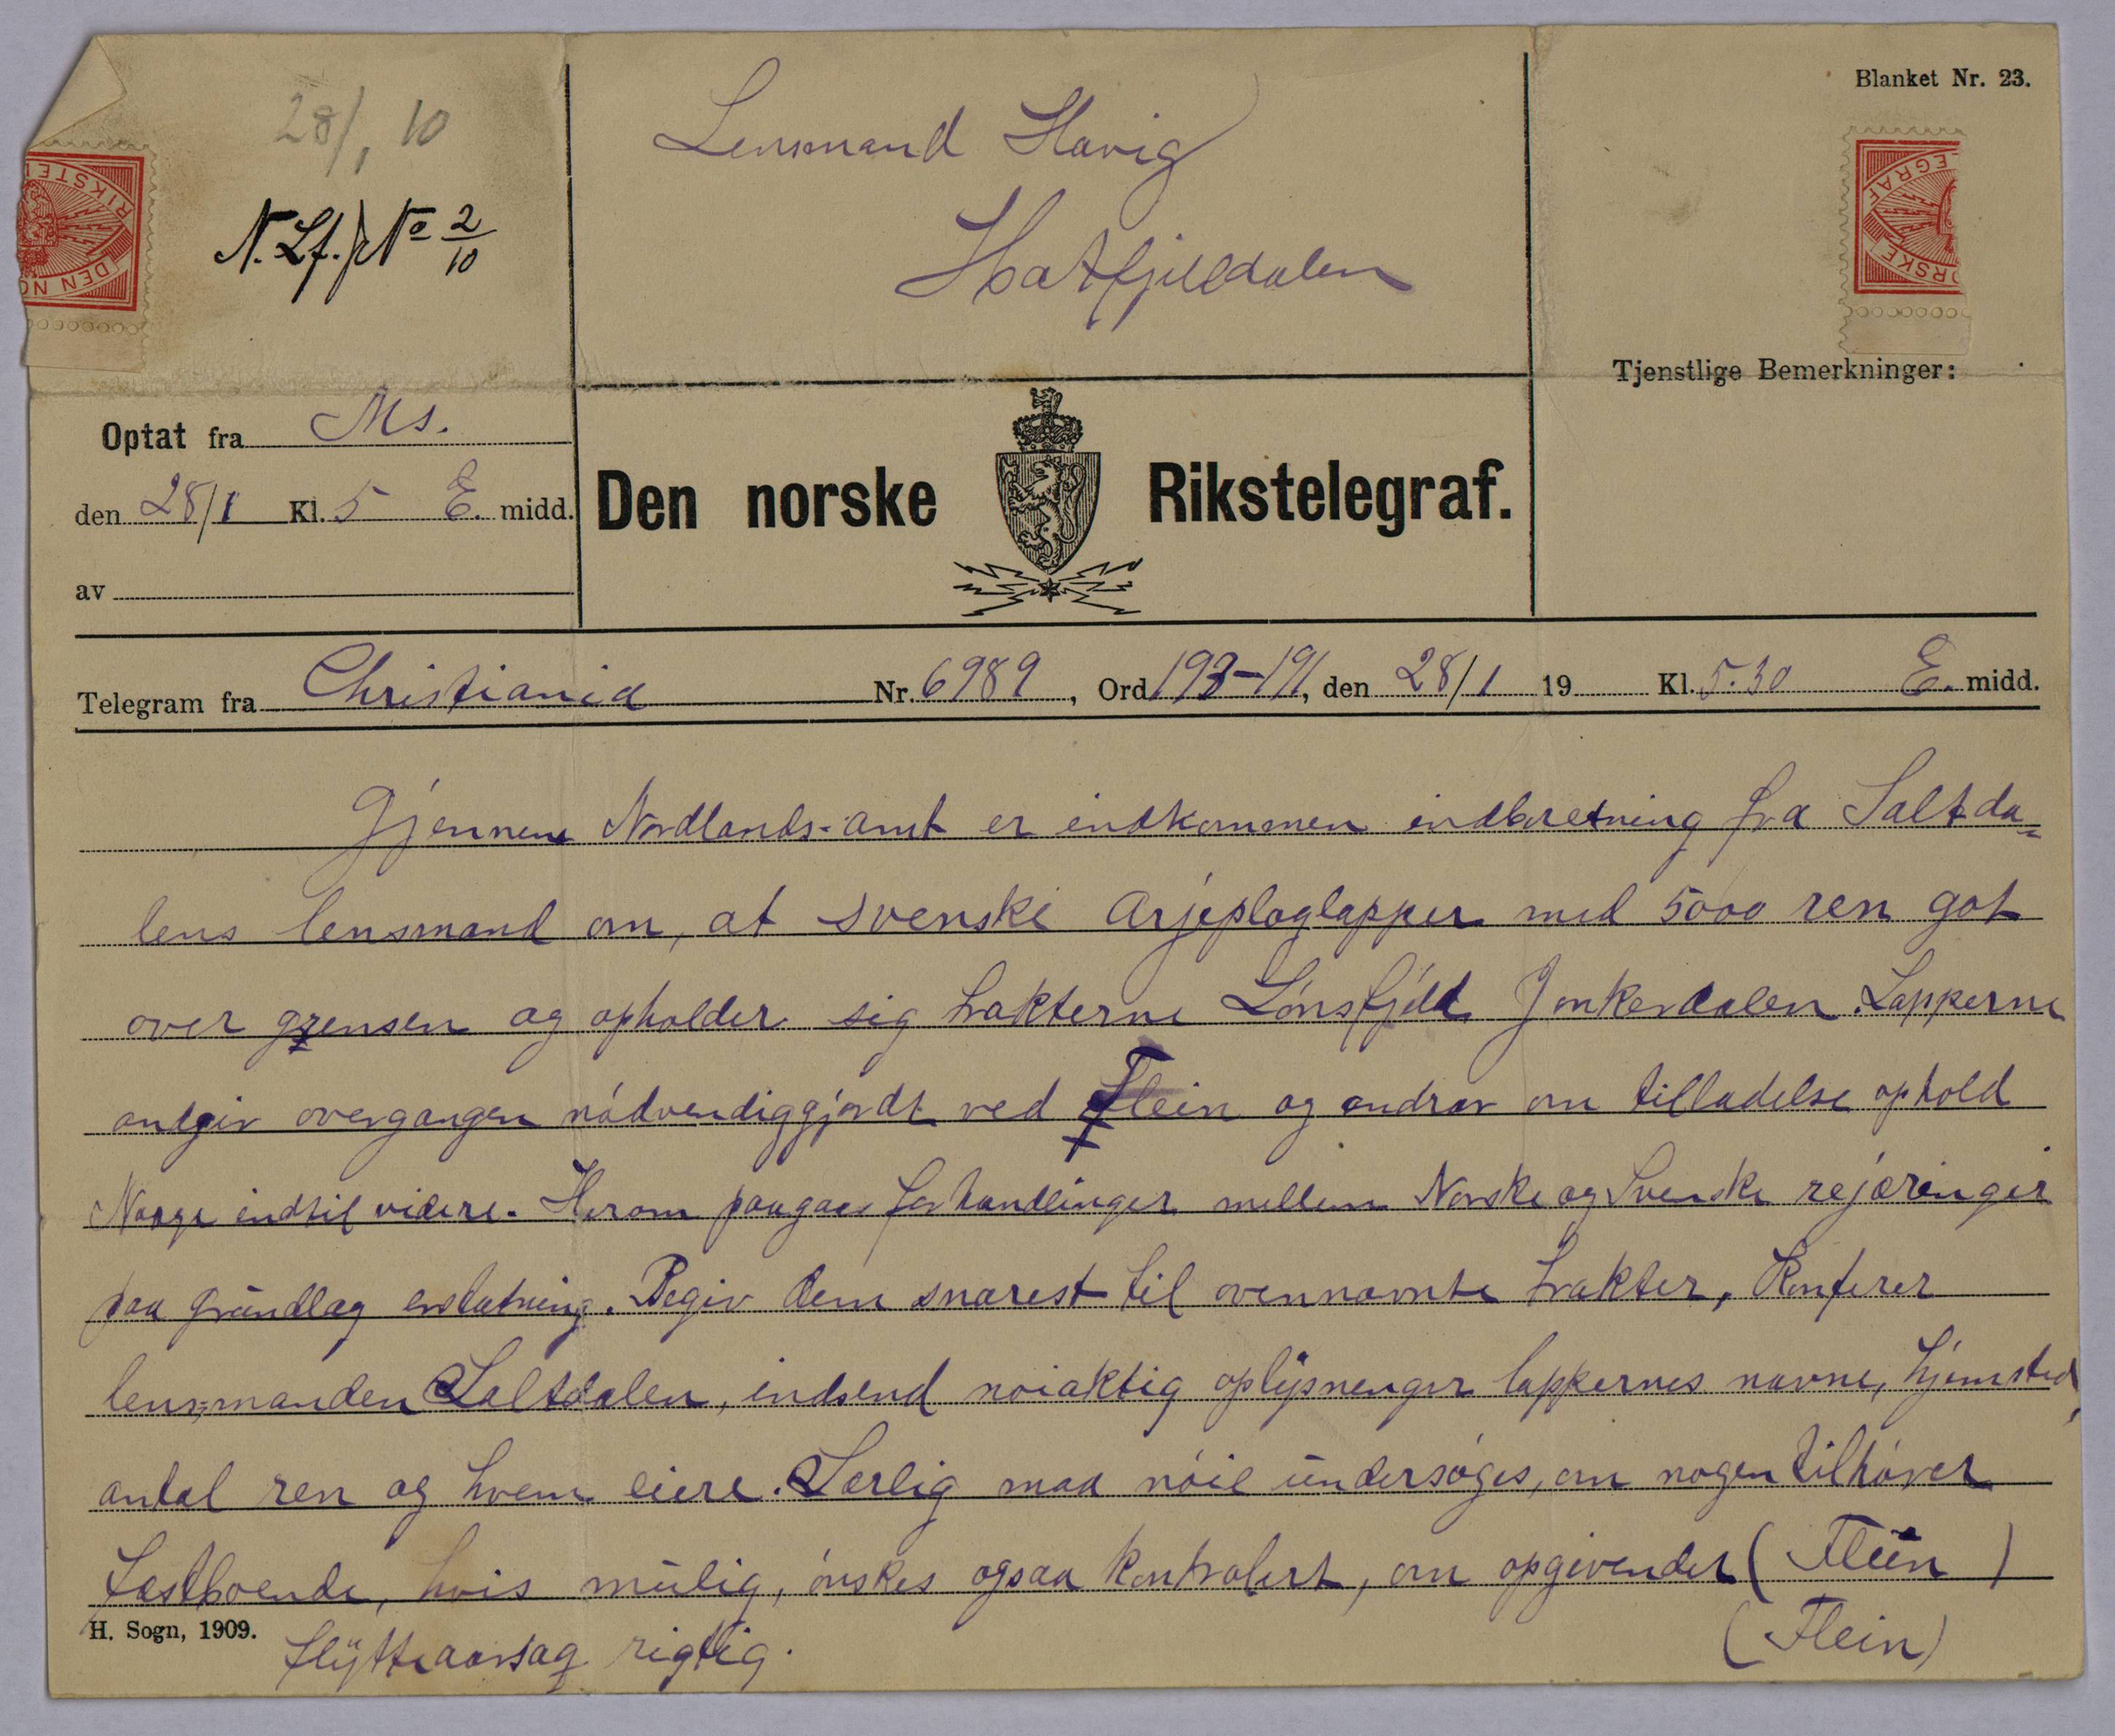 28/1 10
N. Lf. J No 2/10
Lensmand Havig
Hatfjelldalen
Blanket Nr. 23.
Tjenstlige Bemerkninger:
Optat fra Ms.
den 28/1 Kl. 5 E. midd.
av
Den norske Rikstelegraf.
Telegram fra Christiania Nr. 6989, Ord 193-191, den 28/1 19 Kl. 5.30 E. midd.
Gjennem Nordlands-amt er indkommen indberetning fra Saltda=
lens lensmand om, at svenske Arjeploglapper med 5000 ren gåt
over grensen og opholder sig trakterne Lónsfjeld Junkerdalen. Lapperne
andgir overgangen nódvendiggjordt ved Flein og andrar om tilladelse ophold
Norge indtil videre. Herom paagaar forhandlinger mellem Norske og Svenske rejæringer
paa grundlag erstatning. Begiv dem snarest til ovennævnte trakter, Konferer
lensmanden Saltdalen, indsend noiaktig oplysnenger lappernes navne, hjemsted,
antal ren og hvem eiere. Særlig maa nóie undersóges, om nogen tilhórer
fastboende, hvis mulig, ónskes ogsaa kontrolert, om opgivendes (Flein)
H. Sogn, 1909.
flytteaarsag rigtig. (Flein)
RIKSTEL
DEN NO
EGRAF
ORSKE